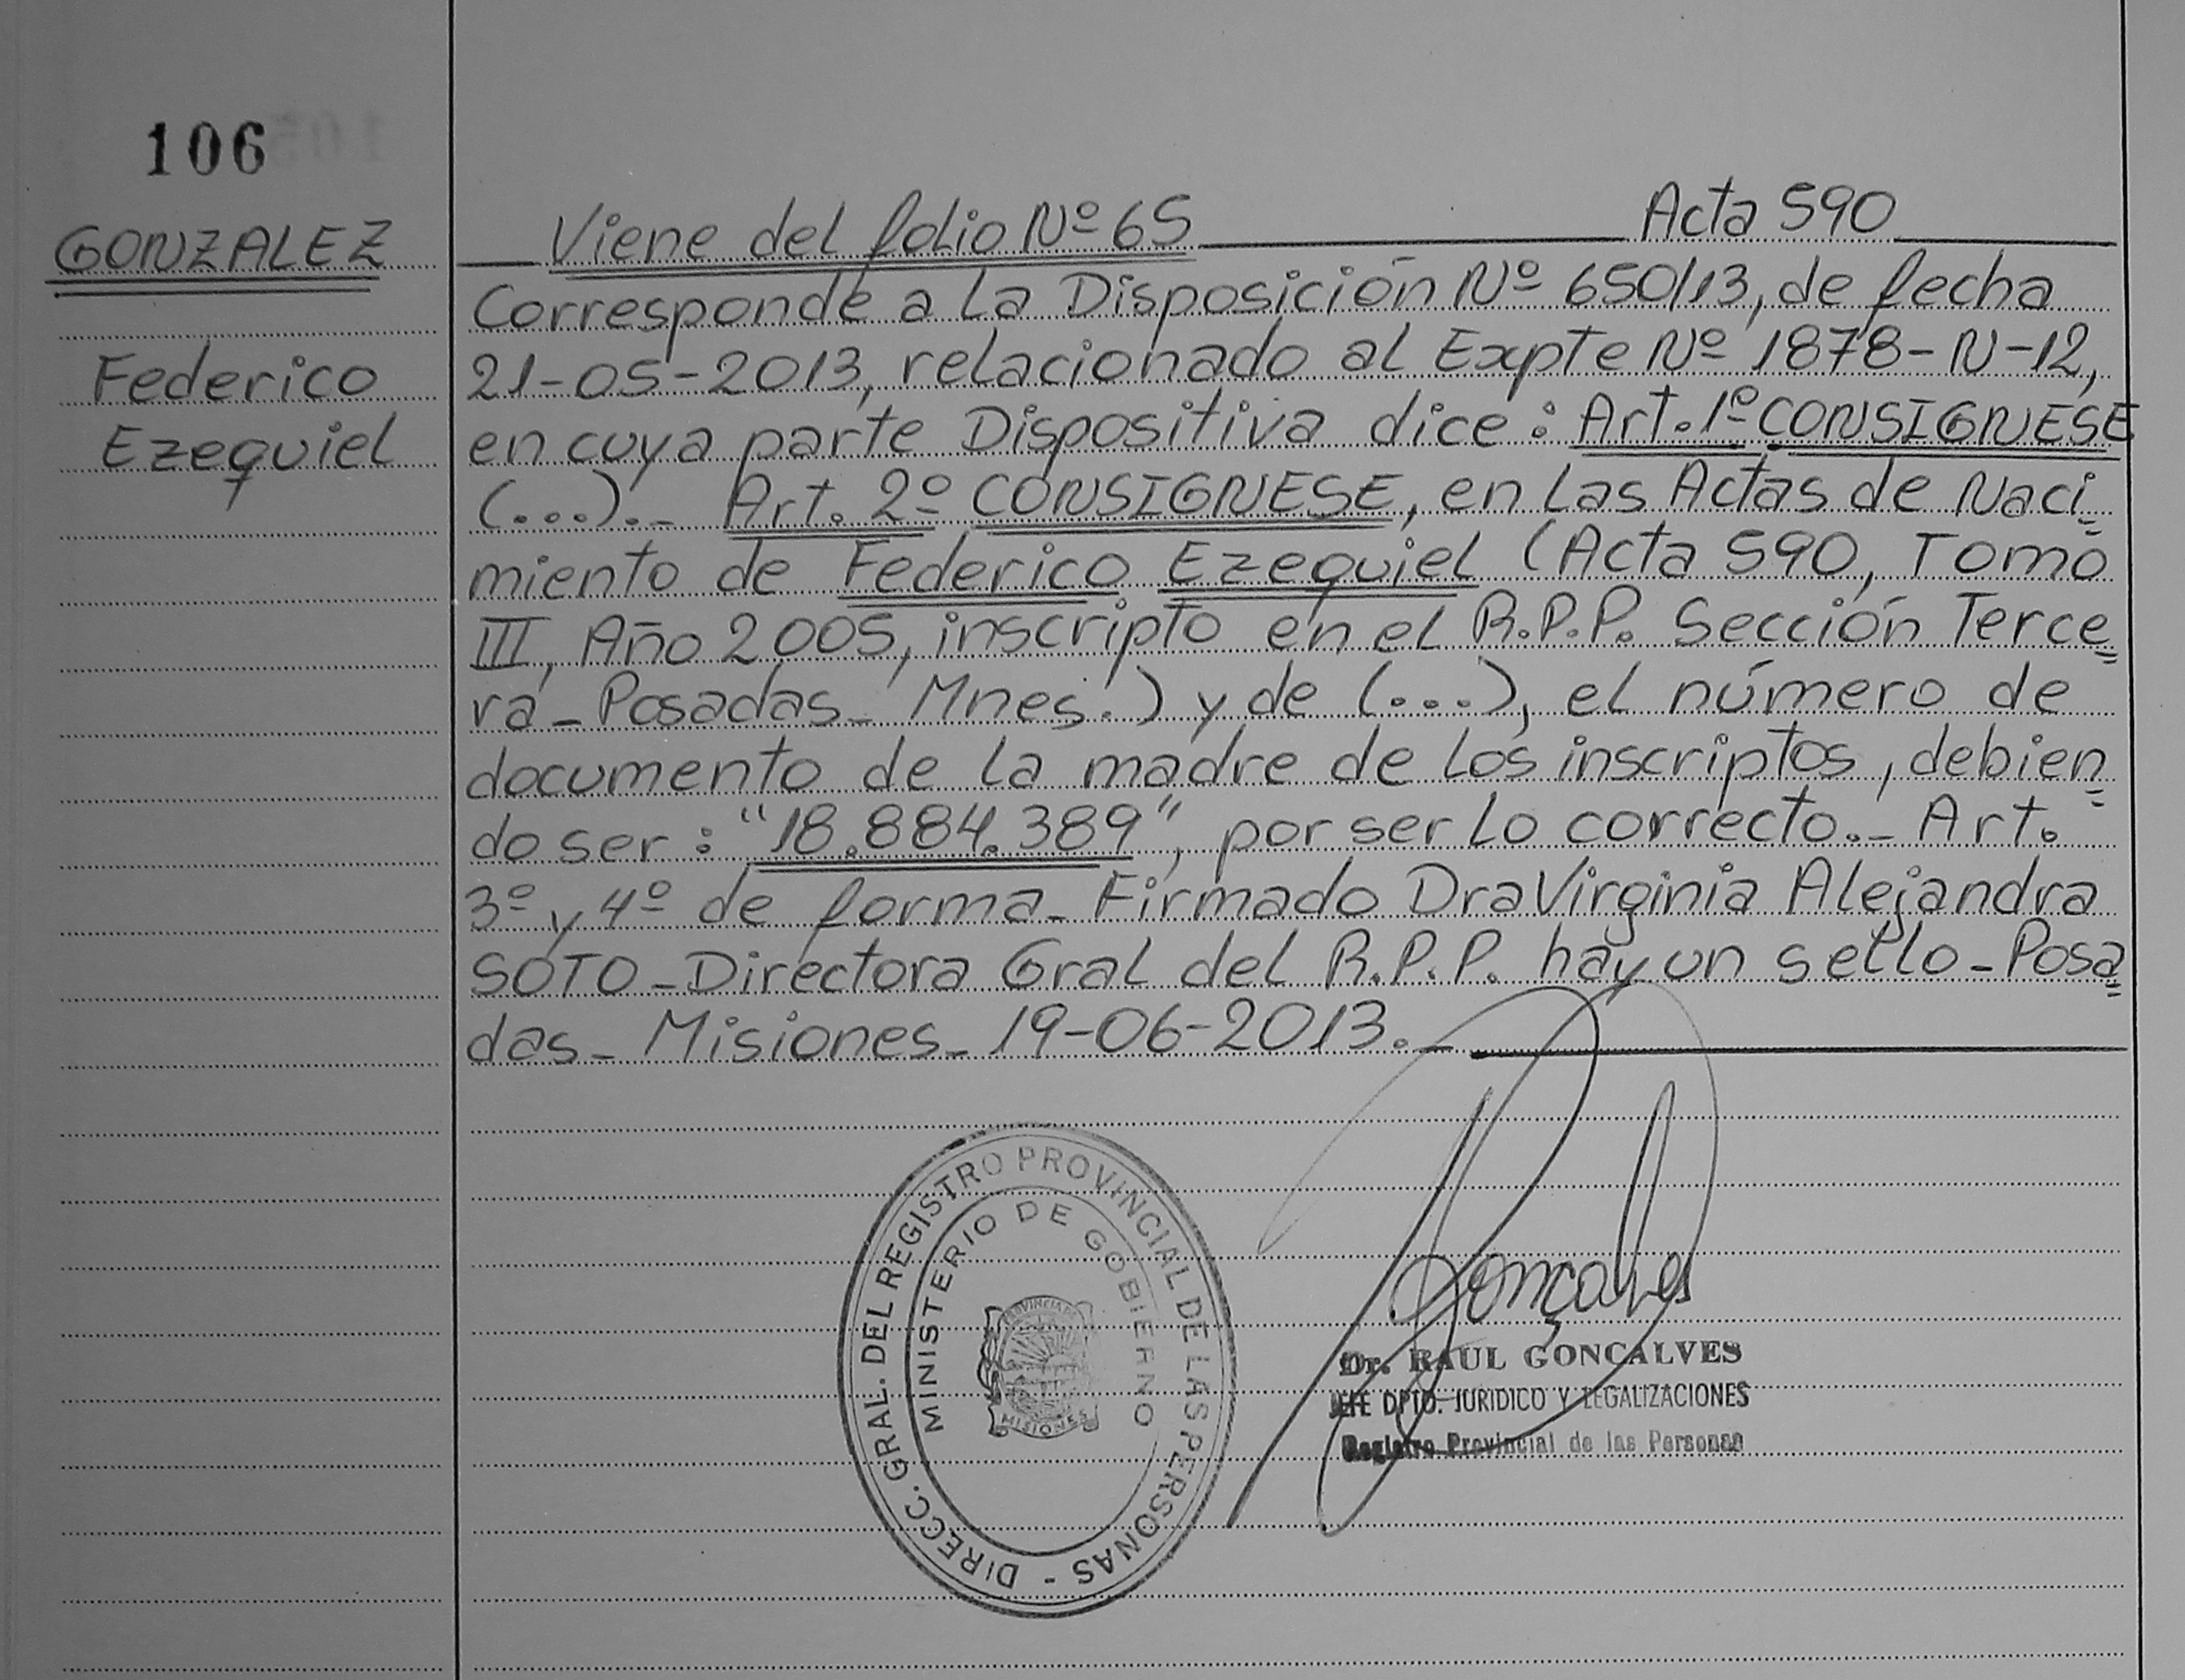 106
GONZALEZ
Federico
Ezequiel
Viene del folio Nº 65 Acta 590
Corresponde a la Disposición Nº 650/13, de fecha
21-05-2013, relacionado al Expte Nº 1878-N-12,
en cuya parte Dispositiva dice: Art. 1º CONSIGNESE
(...).- Art. 2º CONSIGNESE, en las Actas de Naci=
miento de Federico Ezequiel (Acta 590, Tomo
III, Año 2005, inscripto en el R.P.P. Sección Terce=
ra - Posadas - Mnes.) y de (...), el número de
documento de la madre de los inscriptos, debien=
do ser: "18.884.389", por ser lo correcto.- Art.
3º y 4º de forma - Firmado Dra Virginia Alejandra
SOTO - Directora Gral del R.P.P. hay un sello - Posa=
das - Misiones - 19-06-2013.-
DIRECC. GRAL. DEL REGISTRO PROVINCIAL DE LAS PERSONAS -
MINISTERIO DE GOBIERNO
PROVINCIA DE
MISIONES
Gonçalves
Dr. RAUL GONÇALVES
JEFE DPTO. JURIDICO Y LEGALIZACIONES
Registro Provincial de las Personas